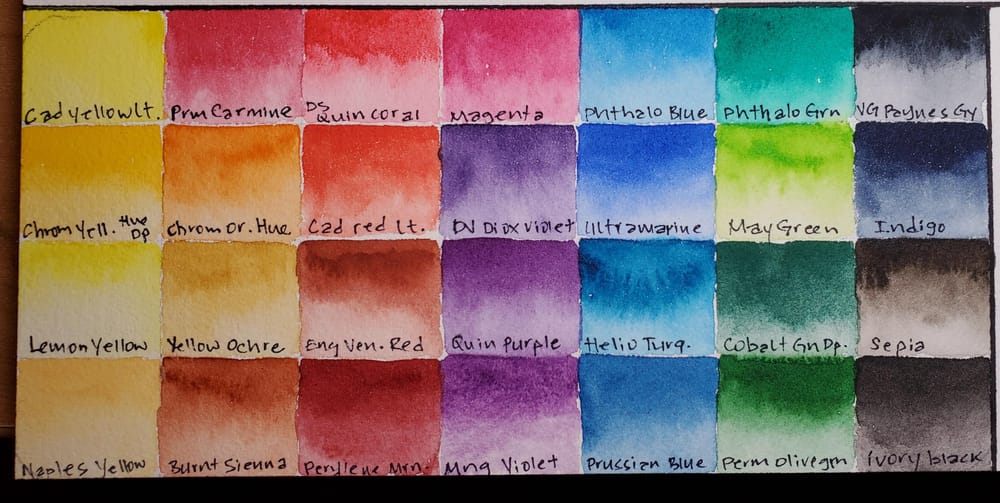 Cad Yellow Lt.
Prm Carmine
DS
Quin Coral
Magenta
Phthalo Blue
Phthalo Grn
VG Paynes Gy
Chrom Yell. Hue
DP
Chrom Or. Hue
Cad red Lt.
DV Diox Violet
Ultramarine
May Green
Indigo
Lemon Yellow
Yellow Ochre
Eng Ven. Red
Quin Purple
Helio Turq.
Cobalt Gn Dp.
Sepia
Naples Yellow
Burnt Sienna
Perylene Mrn.
Mng Violet
Prussian Blue
Perm Olive grn
ivory black